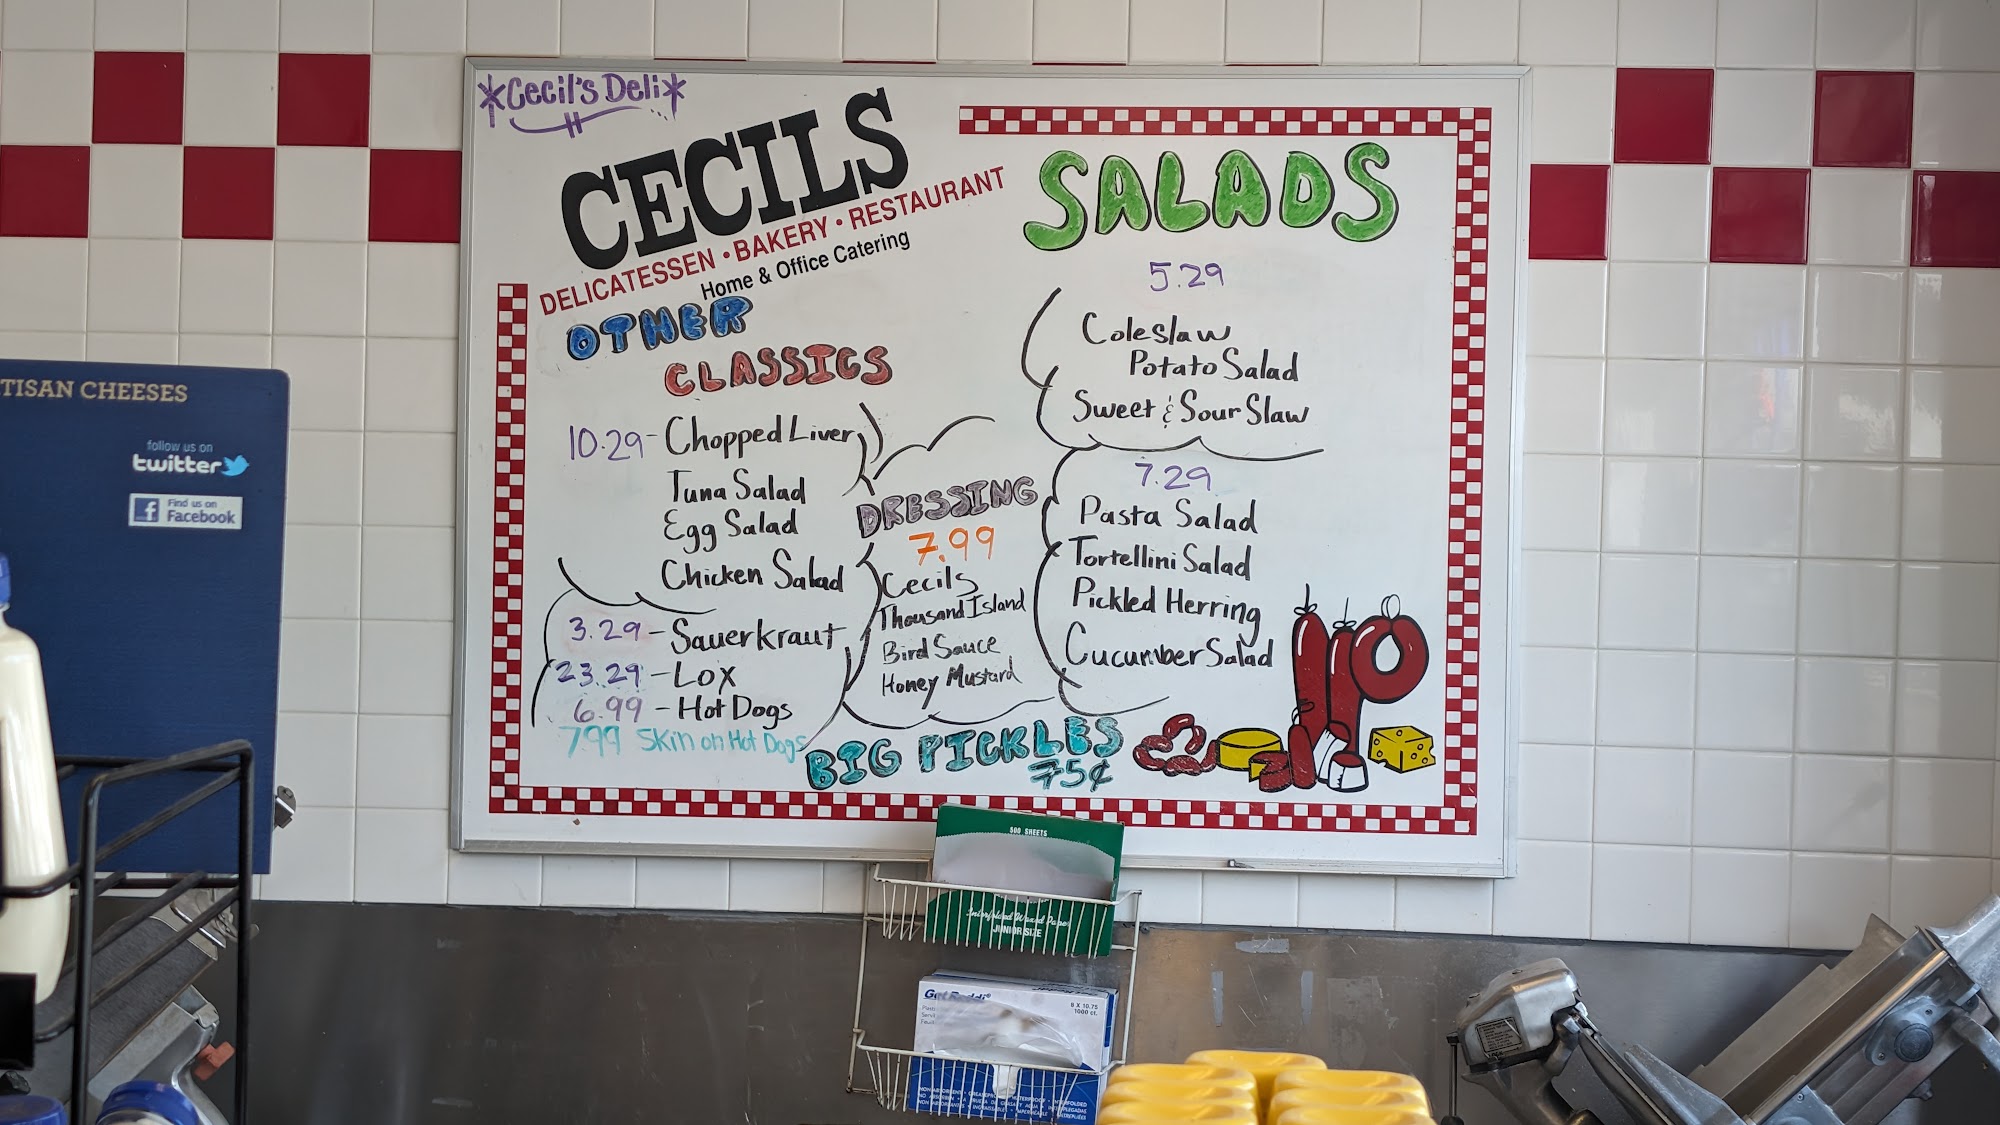 *Cecil's Deli*
CECILS
DELICATESSEN • BAKERY • RESTAURANT
Home & Office Catering
OTHER
CLASSICS
10.29 - Chopped Liver
Tuna Salad
Egg Salad
Chicken Salad
3.29 - Sauerkraut
23.29 - Lox
6.99 - Hot Dogs
7.99 Skin on Hot Dogs
DRESSING
7.99
Cecils
Thousand Island
Bird Sauce
Honey Mustard
BIG PICKLES
75¢
SALADS
5.29
Coleslaw
Potato Salad
Sweet & Sour Slaw
7.29
Pasta Salad
Tortellini Salad
Pickled Herring
Cucumber Salad
TISAN CHEESES
follow us on
twitter
Find us on
Facebook
500 SHEETS
Interfolded Waxed Paper
JUNIOR SIZE
8 X 10.75
1000 ct.